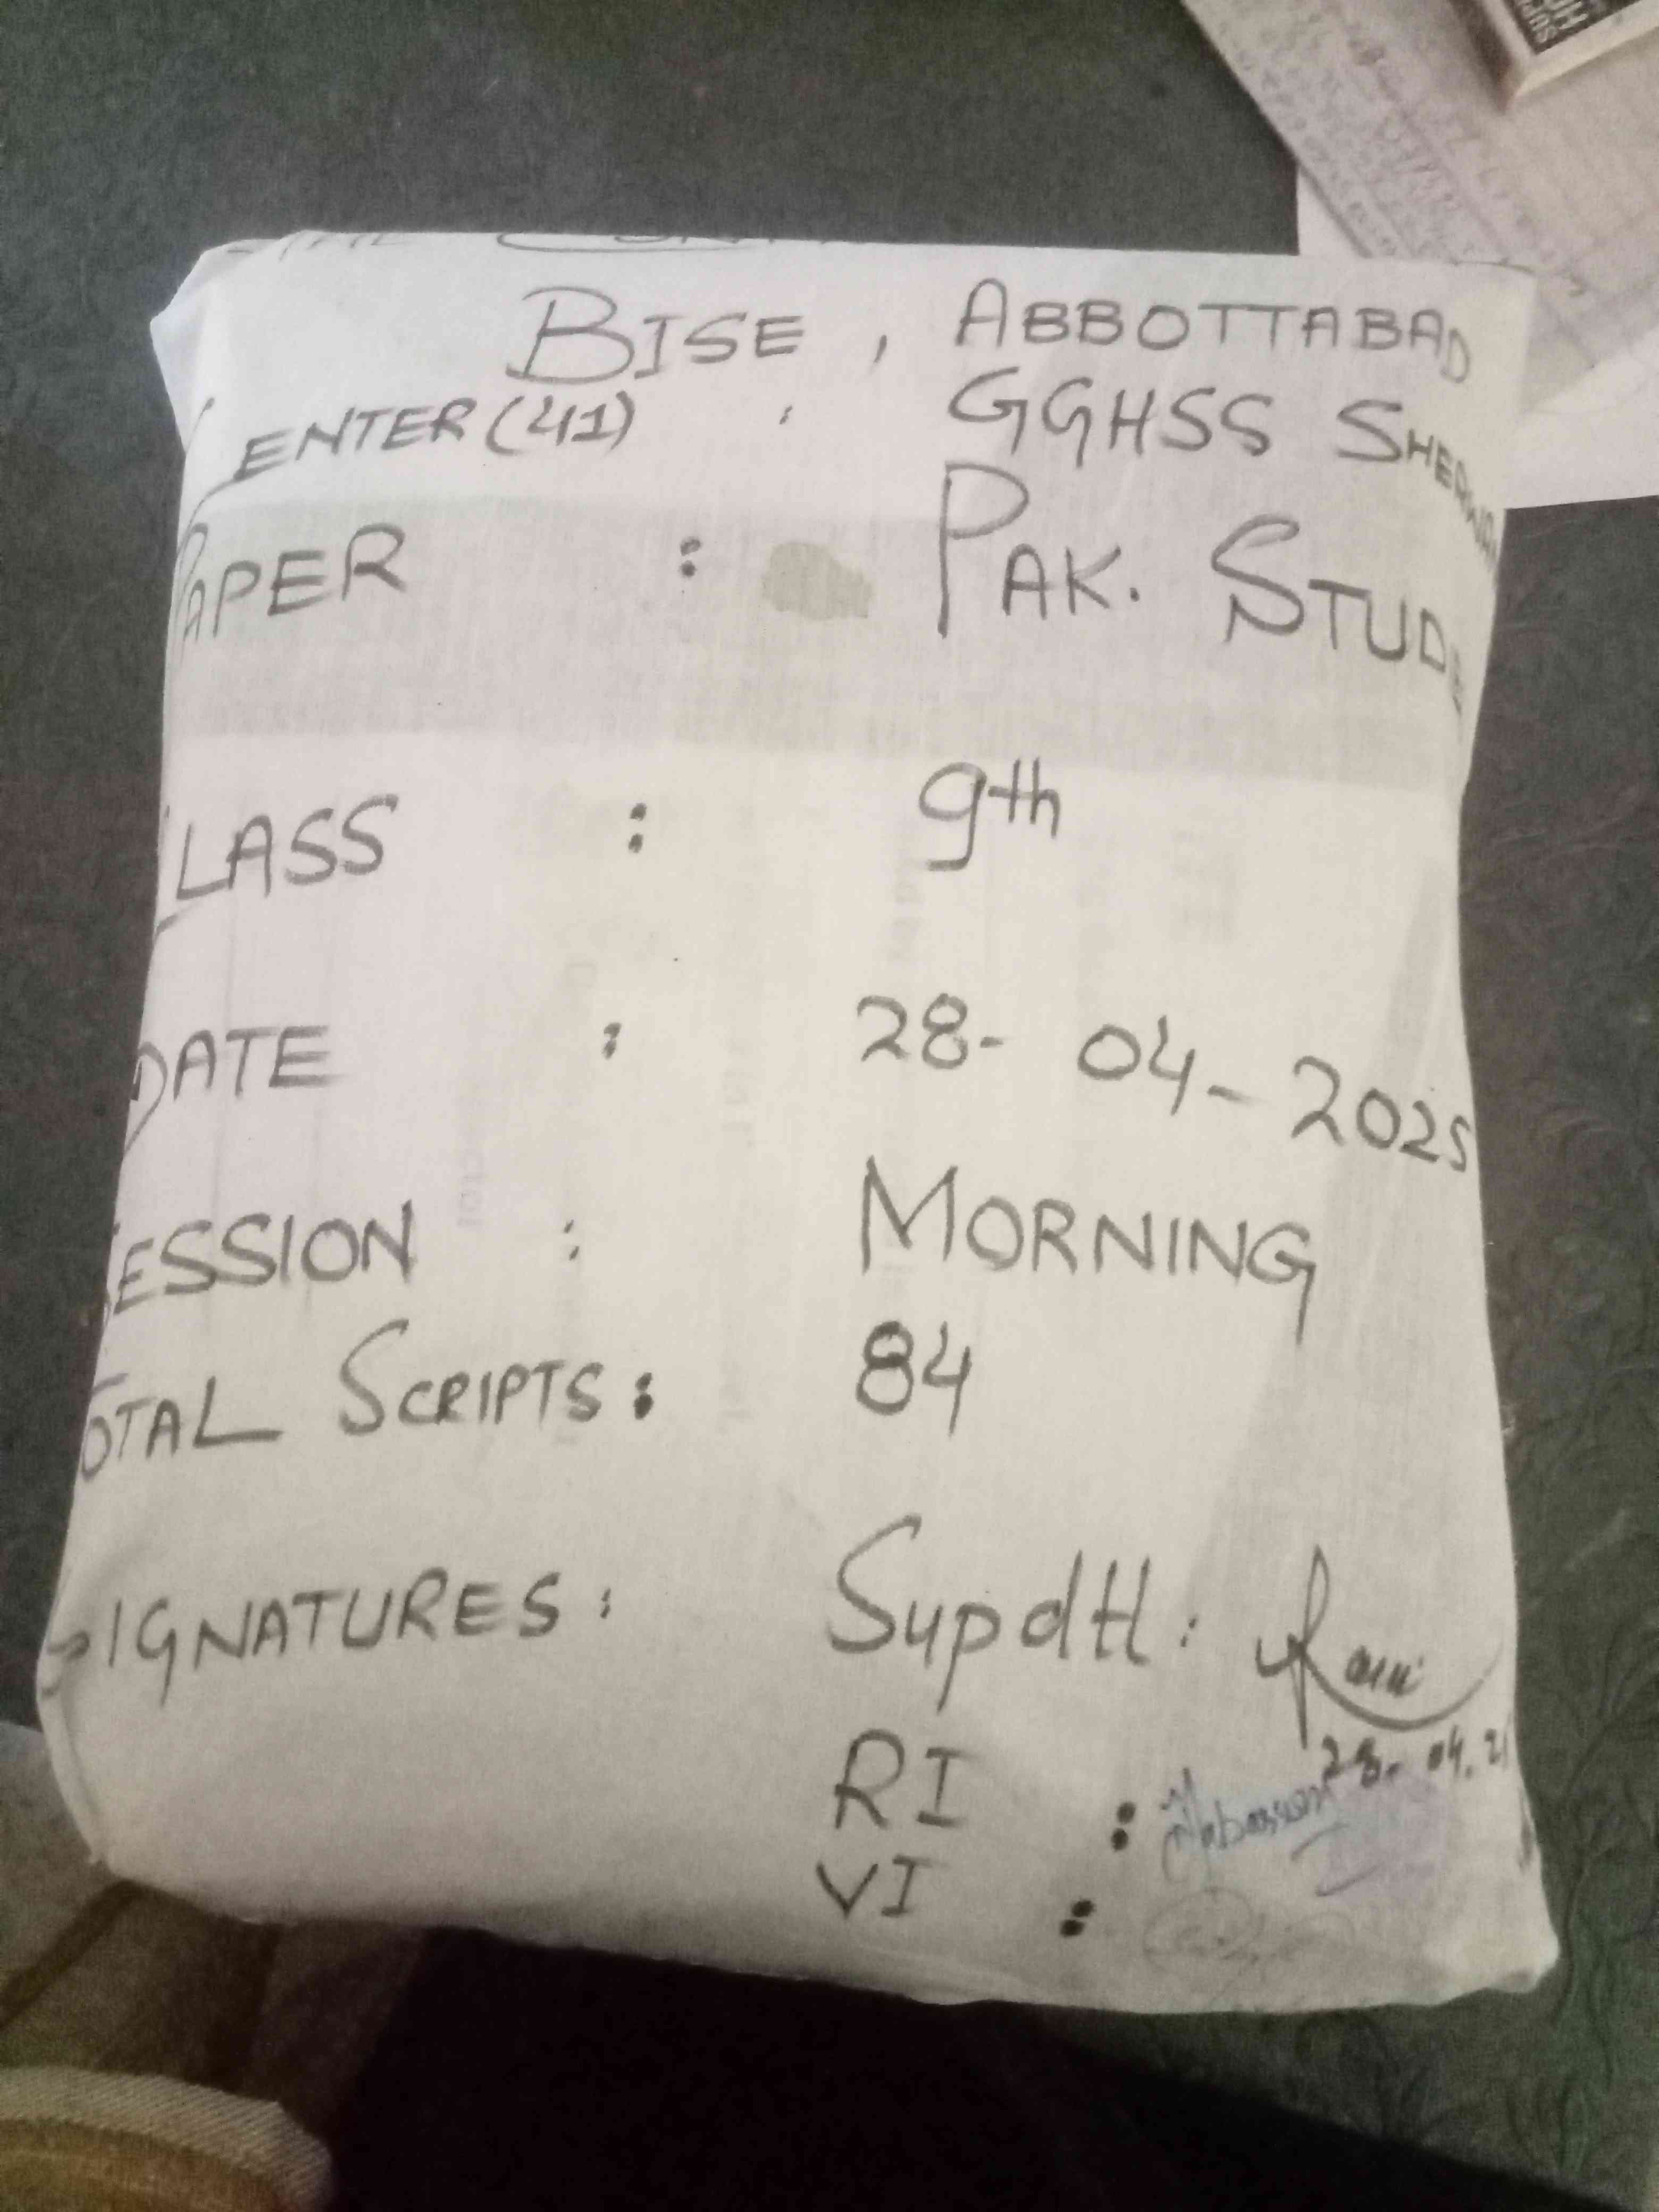 BISE, ABBOTTABAD
CENTER (41) : GGHSS SHERWAN
PAPER : PAK. STUDIE
CLASS : 9th
DATE : 28-04-2025
SESSION : MORNING
TOTAL SCRIPTS: 84
SIGNATURES: Supdtt:
28.04.2
RI :
VI :